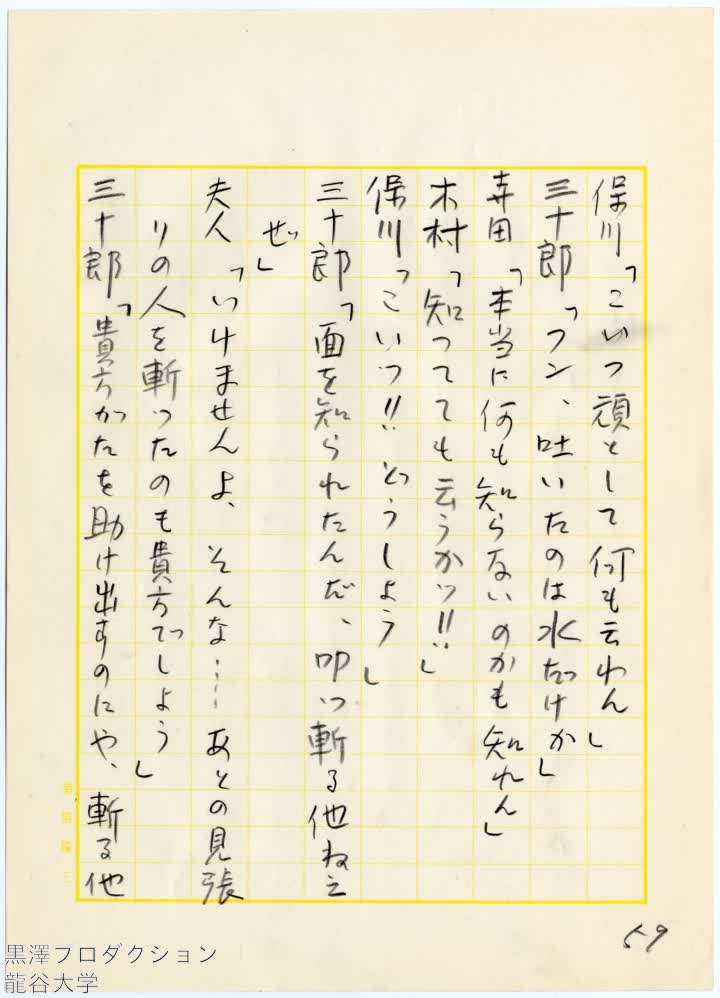 保川「こいつ頑として何も云わん」
三十郎「フン、吐いたのは水だけか」
寺田「本当に何も知らないのかも知れん」
木村「知ってても云うかッ!!」
保川「こいつ!! どうしよう」
三十郎「面を知られたんだ、叩っ斬る他ねえ
ぜ」
夫人「いけませんよ、そんな…… あとの見張
りの人を斬ったのも貴方でしよう」
三十郎「貴方がたを助け出すのにや、斬る他
59
黒澤プロダクション
龍谷大学